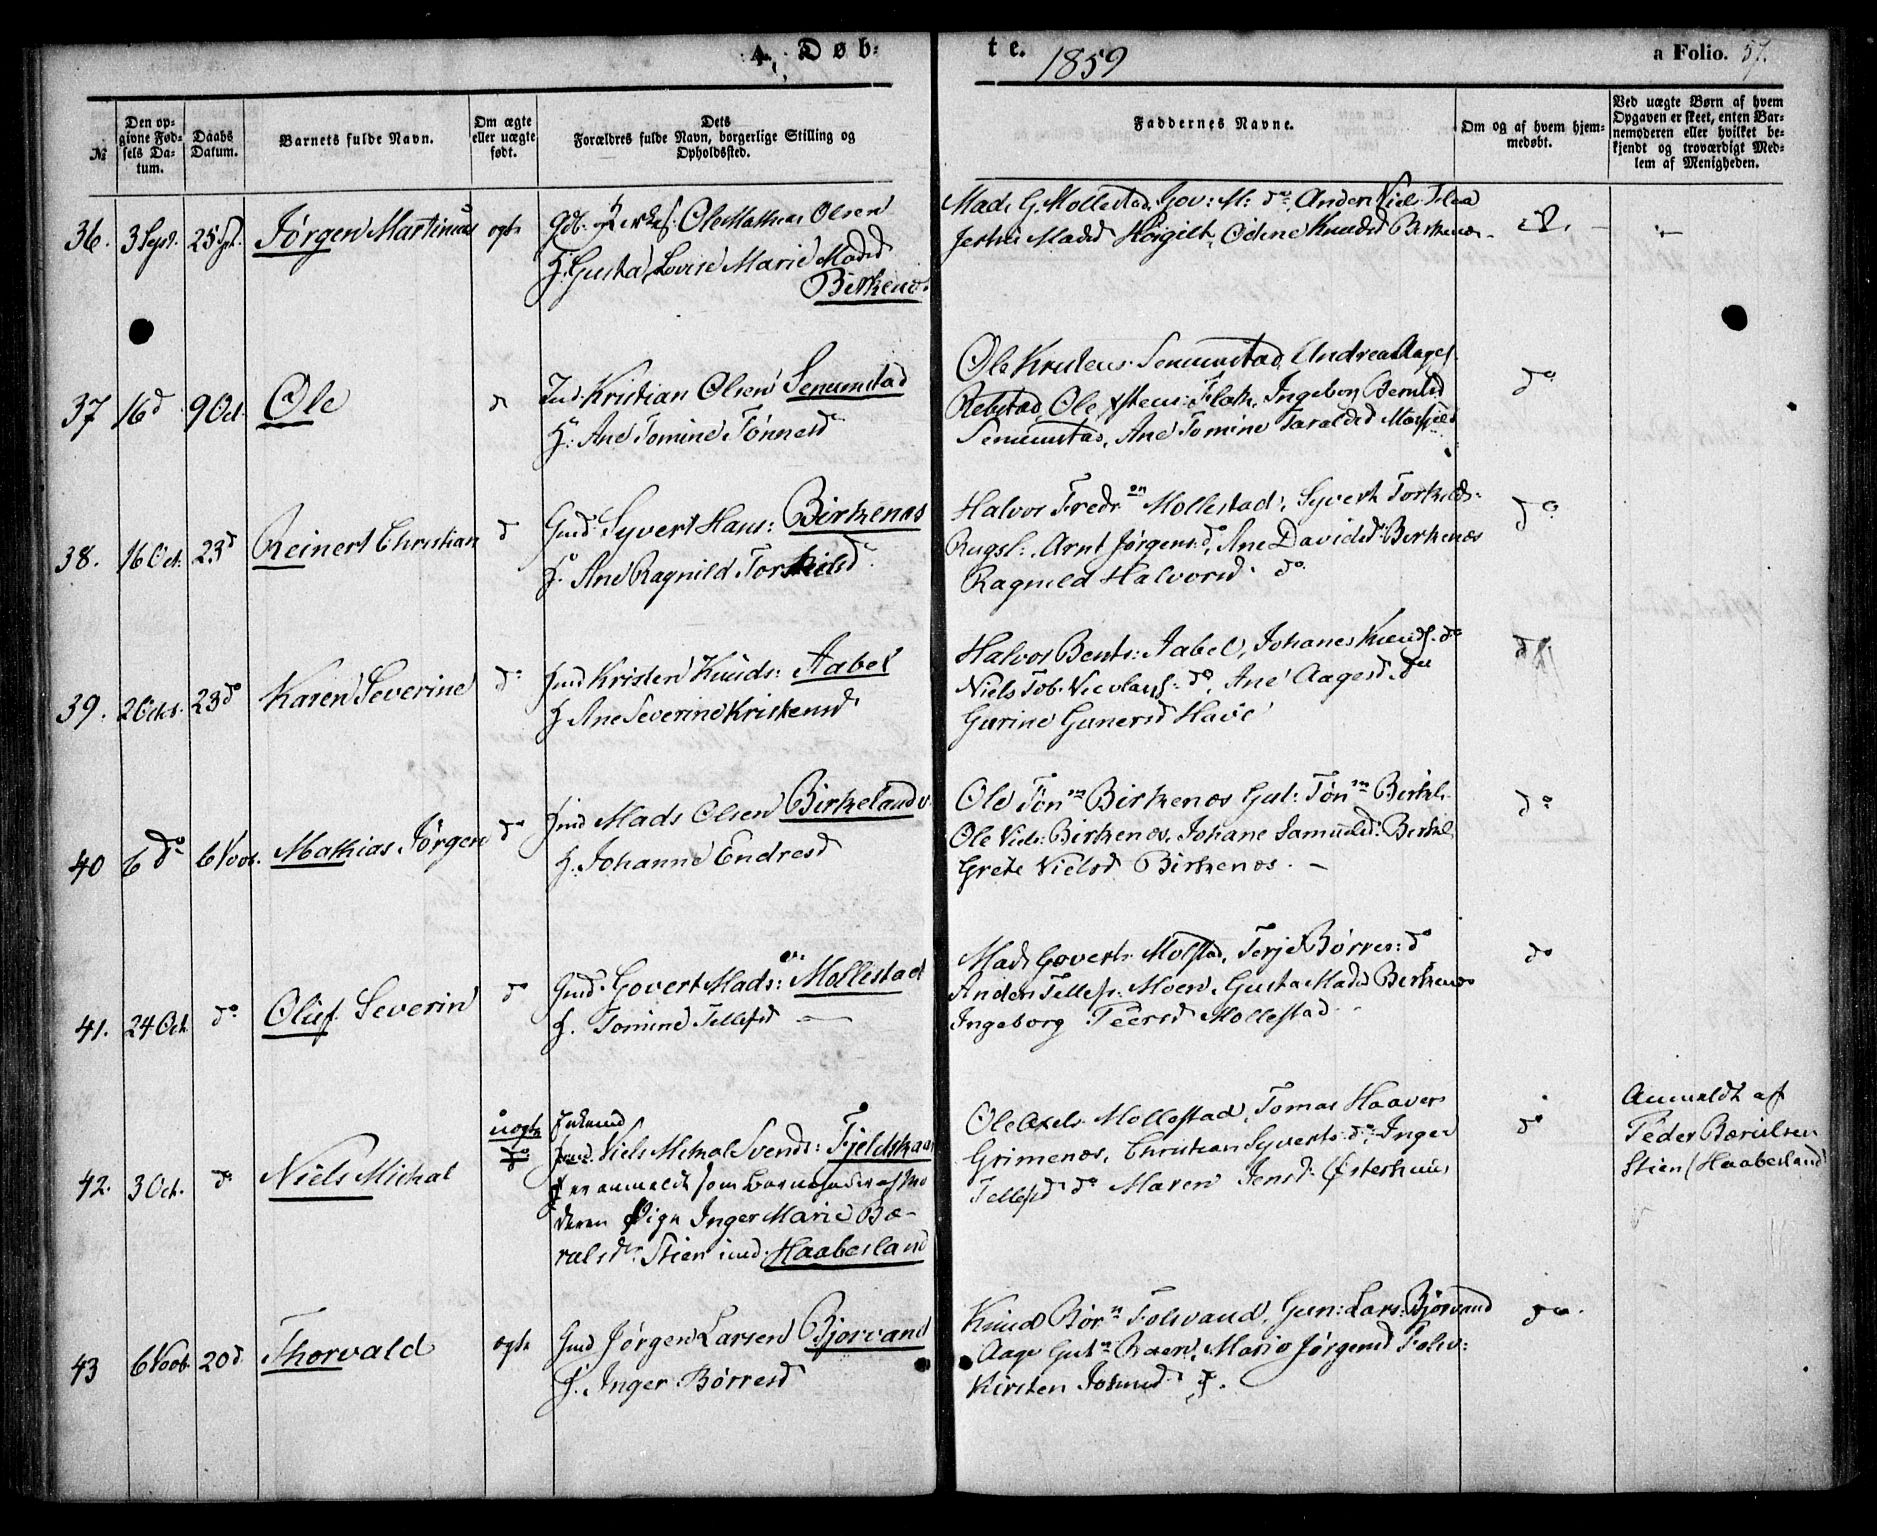 4. Døb-
te. 1859
a Folio. 57.
№
Den op-
givne Fød-
sels Da-
tum.
Daabs
Datum.
Barnets fulde Navn.
Om ægte
eller uægte
født.
Dets
Forældres fulde Navn, borgerlige Stilling og
Opholdssted.
Faddernes Navne.
Om og af hvem hjem-
medøbt.
Ved uægte Børn af hvem
Opgaven er skeet, enten Bar-
nemoderen eller hvilket be-
kjendt og troværdigt Med-
lem af Menigheden.
36. 3 Sept. 25 Spt. Jørgen Martinus ægte
Ole Mathias Olsen
H. Gusta Lovise Marie Madsd
Birkenæs
Mads G. Mollestad, Gov: M: do, Anders Niels Flaa
Madsd Høigilt, Odine Knudsd Birkenæs
37 16 d 9 Oct. Ole d
Ind Kristian Olsen Senumstad
H: Ane Tomine Tønnesd
Ole Senumstad, Andreas Aages.
Rebstad, Ole Flak, Ingeborg Berntsd
Senumstad, Ane Tomine Taraldsd
do
38. 16 Oct. 23 d Reinert Christian d
Gmd Syvert Hans: Birkenæs
H. Ane Ragnild Torkilsd
Halvor Fredr on Mollestad, Syvert Torkilds:
Rugsl:, Arnt Jørgens d, Ane Davidsd Birkenæs
Ragnild Halvorsd do
do
39. 2 Octr. 23 do Karen Severine do
Gmd Kristen Knuds: Aabel
H Ane Severine Kristensd
Halvor Bents: Aabel, Johanes Knuds. do
Niels Tob. Nicolais: do, Ane Aagesd do
Gurine Gunersd Have
do
40 6 do 6 Novr. Mathias Jørgen do
Gmd Mads Olsen Birkeland
H. Johanne Endresd
Ole Tøn Birkenæs Gut: Tøn Birkl.
Ole Niels: Birkenæs, Johane Samuelsd: Birkl,
Grete Nielsd Birkenæs. —
do
41. 24 Oct. do Oluf Severin do
Gmd. Govert Mads: Mollestad
H. Tomine Tellefsd —
Mads Goverts Molstad, Terje Børres: do
Anders Tellefs: Moen, Gusta Madsd Birkenæs
Ingeborg Peersd Mollestad
do
42. 3 Oct. do Niels Michal uægte
Niels Michal Svends: Fjeldskaar
er anmeldt som Barnefader af Mo
deren Pige Inger Marie Bæ-
rulsdr. Stien und. Haabesland
Ole Axels. Mollestad, Tomas Haavers
Grimenæs, Christian Syverts: do, Inger
Tellefsd do Maren Jensd: Østerhuus
do
Anmeldt af
Peder Bærulsen
Stien (Haabesland)
43 6 Novb. 20 d Thorvald ægte
Gmd Jørgen Larsen Bjorvand
H. Inger Børresd
Knud Bør Folsvand, Gun: Lars: Bjorvand
Aage Gut, Marie Jørgensd Folsv:
Kirsten d.
do.